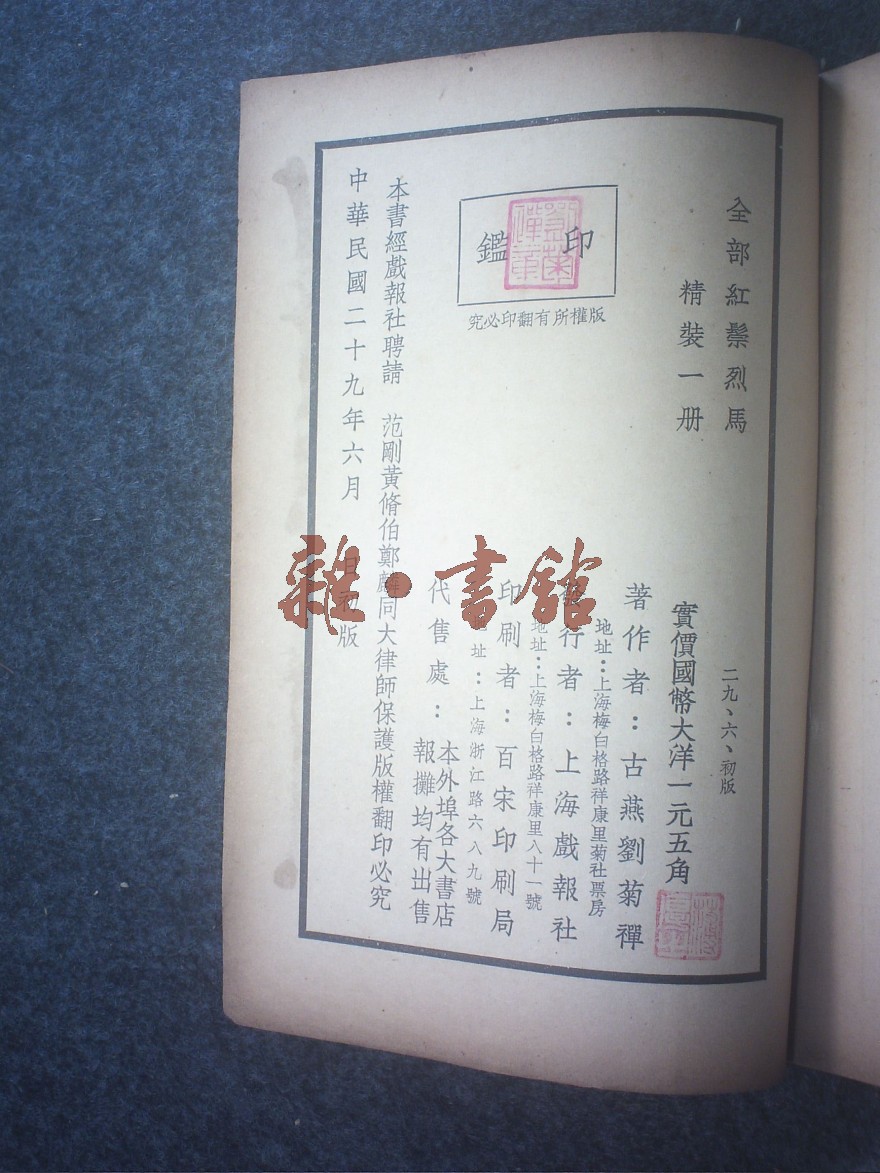 全部紅鬃烈馬
精裝一册
二九、六、初版
實價國幣大洋一元五角
著作者：古燕劉菊禪
地址：上海梅白格路祥康里菊社票房
發行者：上海戲報社
地址：上海梅白格路祥康里八十一號
印刷者：百宋印刷局
地址：上海浙江路六八九號
代售處：
本外埠各大書店
報攤均有出售
印鑑
劉菊禪章
版權所有翻印必究
本書經戲報社聘請 范剛黃脩伯鄭麟同大律師保護版權翻印必究
中華民國二十九年六月 日初版
雜·書館